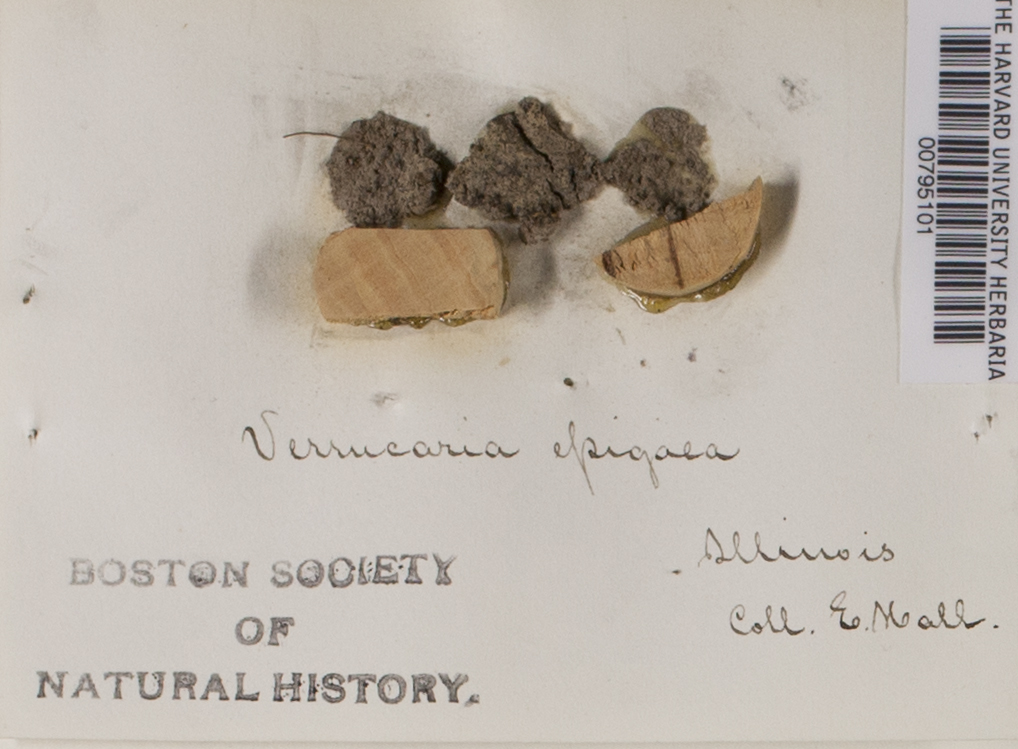 THE HARVARD UNIVERSITY HERBARIA
00795101
Verrucaria epigaea
Illinois
Coll. E. Hall.
BOSTON SOCIETY
OF
NATURAL HISTORY.